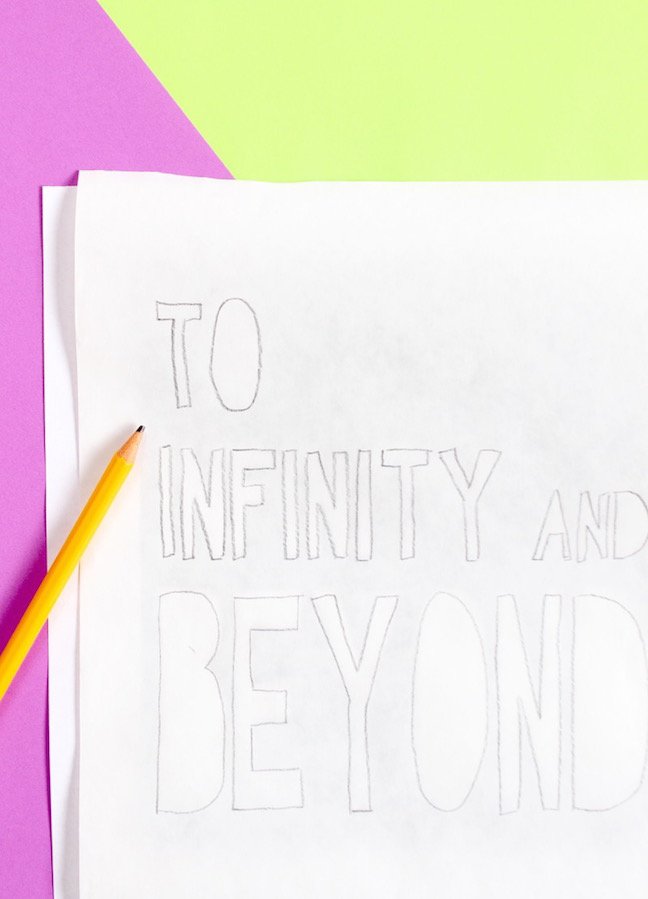 TO
INFINITY AND
BEYOND